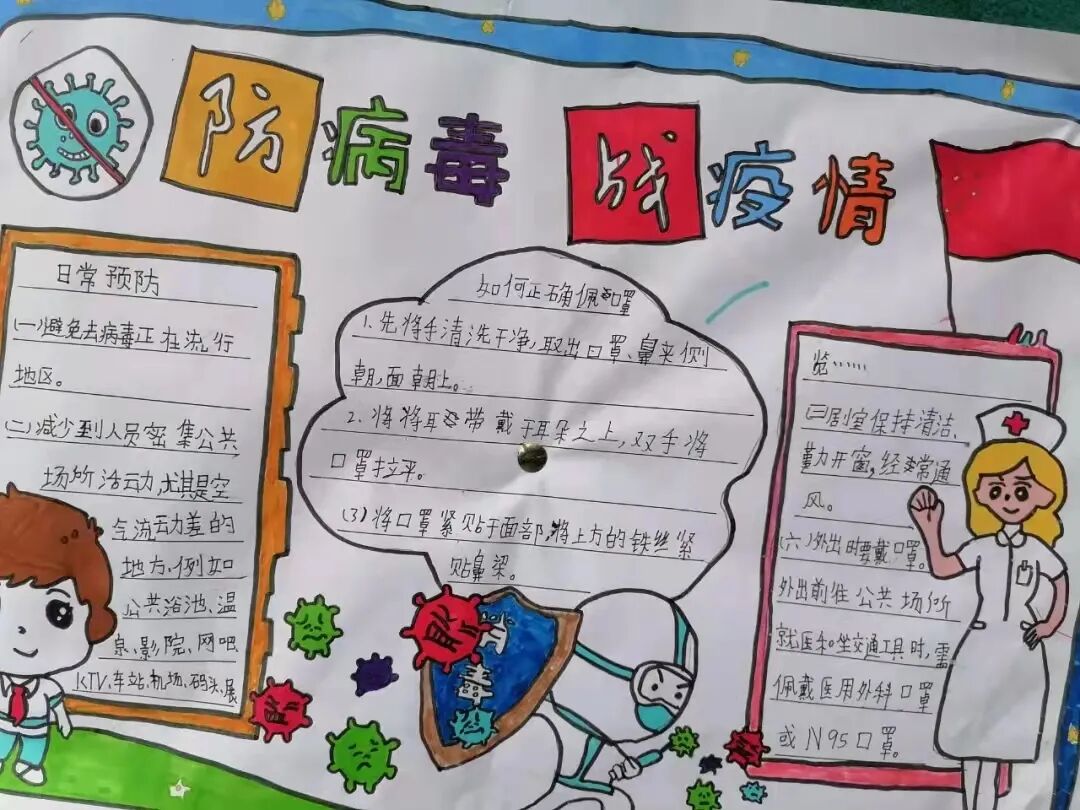 防病毒 战疫情
日常预防
(一)避免去病毒正在流行
地区。
(二)减少到人员密集公共
场所活动,尤其是空
气流动差的
地方,例如
公共浴池、温
泉、影院、网吧
KTV、车站、机场、码头、展
如何正确佩戴口罩
1、先将手清洗干净,取出口罩、鼻夹侧
朝,面朝上。
2、将将耳带戴于耳朵之上,双手将
口罩拉平。
(3)将口罩紧贴于面部,将上方的铁丝紧
贴鼻梁。
览……
(三)居室保持清洁、
勤开窗,经常通
风。
(六)外出时要戴口罩。
外出前往公共场所
就医和坐交通工具时,需
佩戴医用外科口罩
或N95口罩。
毒